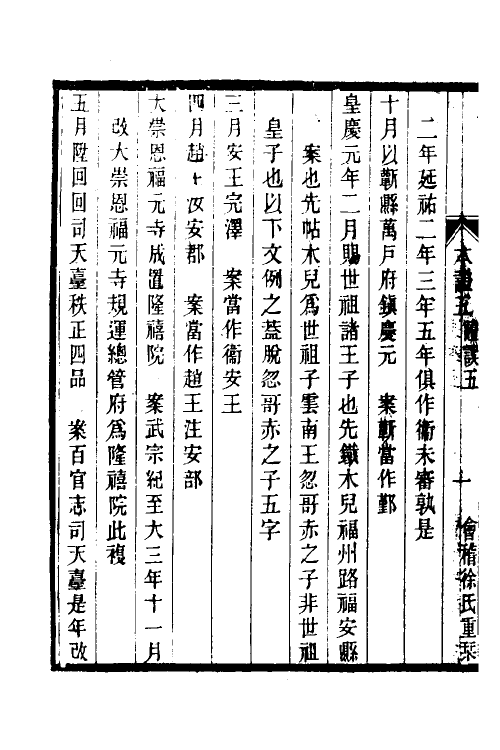 二年延祐二年三年五年俱作衛未審孰是
十月以蘄縣萬戶府鎮慶元　案蘄當作鄞
皇慶元年二月賜世祖諸王子也先鐵木兒福州路福安縣
案也先帖木兒爲世祖子雲南王忽哥赤之子非世祖
皇子也以下文例之蓋脫忽哥赤之子五字
三月安王完澤　案當作衞安王
四月趙　汝安郡　案當作趙王注安部
大崇恩福元寺成置隆禧院　案武宗紀至大三年十一月
改大崇恩福元寺規運總管府爲隆禧院此複
五月陞回回司天臺秩正四品　案百官志司天臺是年改
本證五　證誤五
十　會稽徐氏重栞